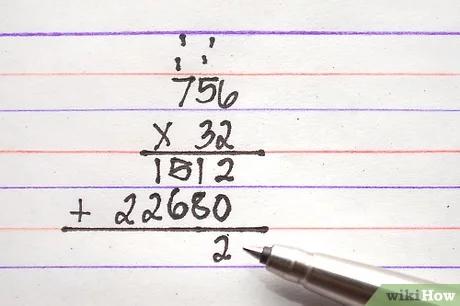 1 1
1 1
756
X 32
1512
+ 22680
2
wikiHow